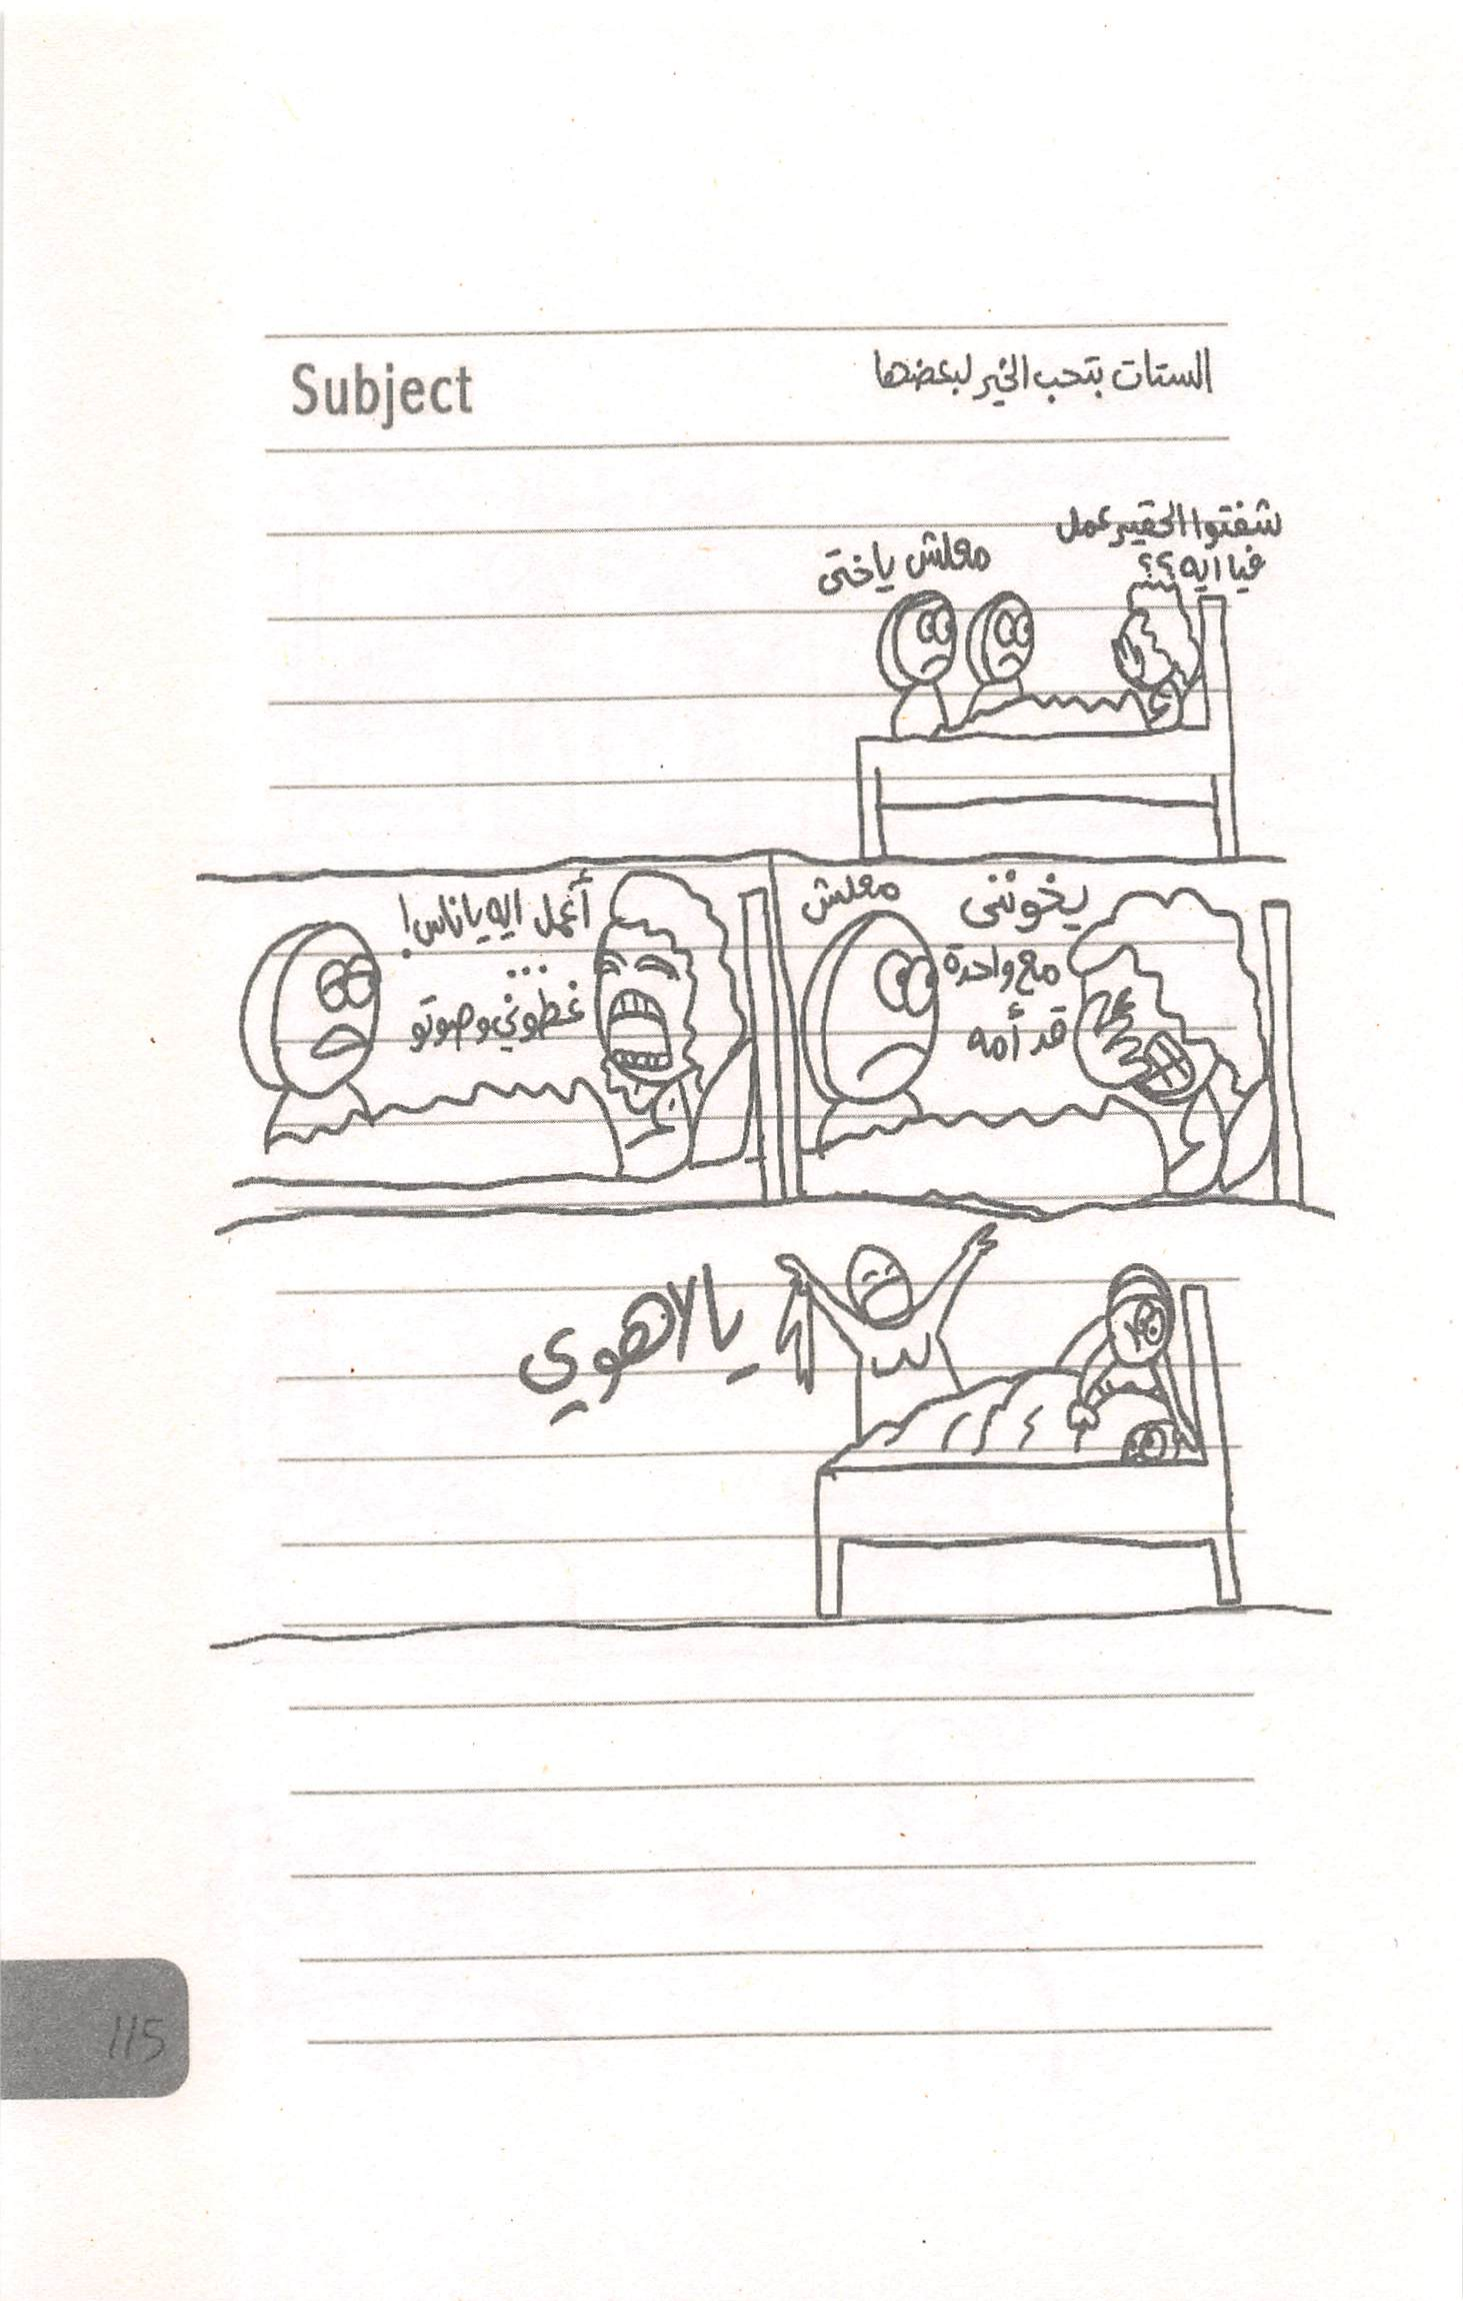 Subject
الستات بتحب الخير لبعضها
شفتوا الحقير عمل
فيا ايه؟؟
معلش ياختي
يخونني
مع واحدة
قد أمه
معلش
أعمل ايه يا ناس!
...
غطوني وصوتو
يالاهوي
115